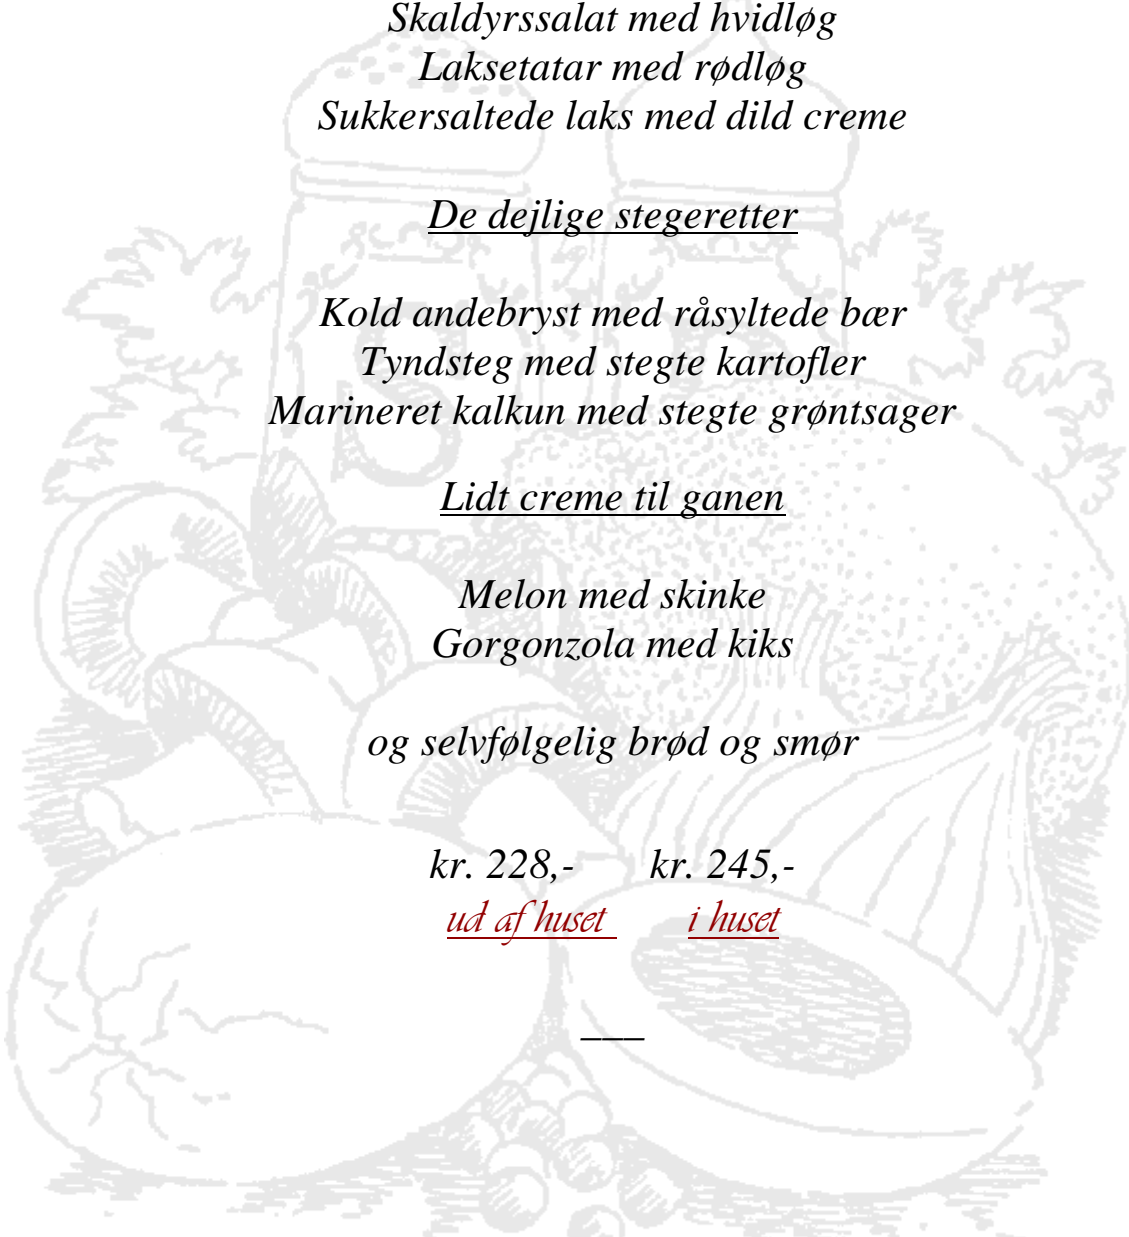 Skaldyrssalat med hvidløg
Laksetatar med rødløg
Sukkersaltede laks med dild creme
De dejlige stegeretter
Kold andebryst med råsyltede bær
Tyndsteg med stegte kartofler
Marineret kalkun med stegte grøntsager
Lidt creme til ganen
Melon med skinke
Gorgonzola med kiks
og selvfølgelig brød og smør
kr. 228,- kr. 245,-
ud af huset i huset
___